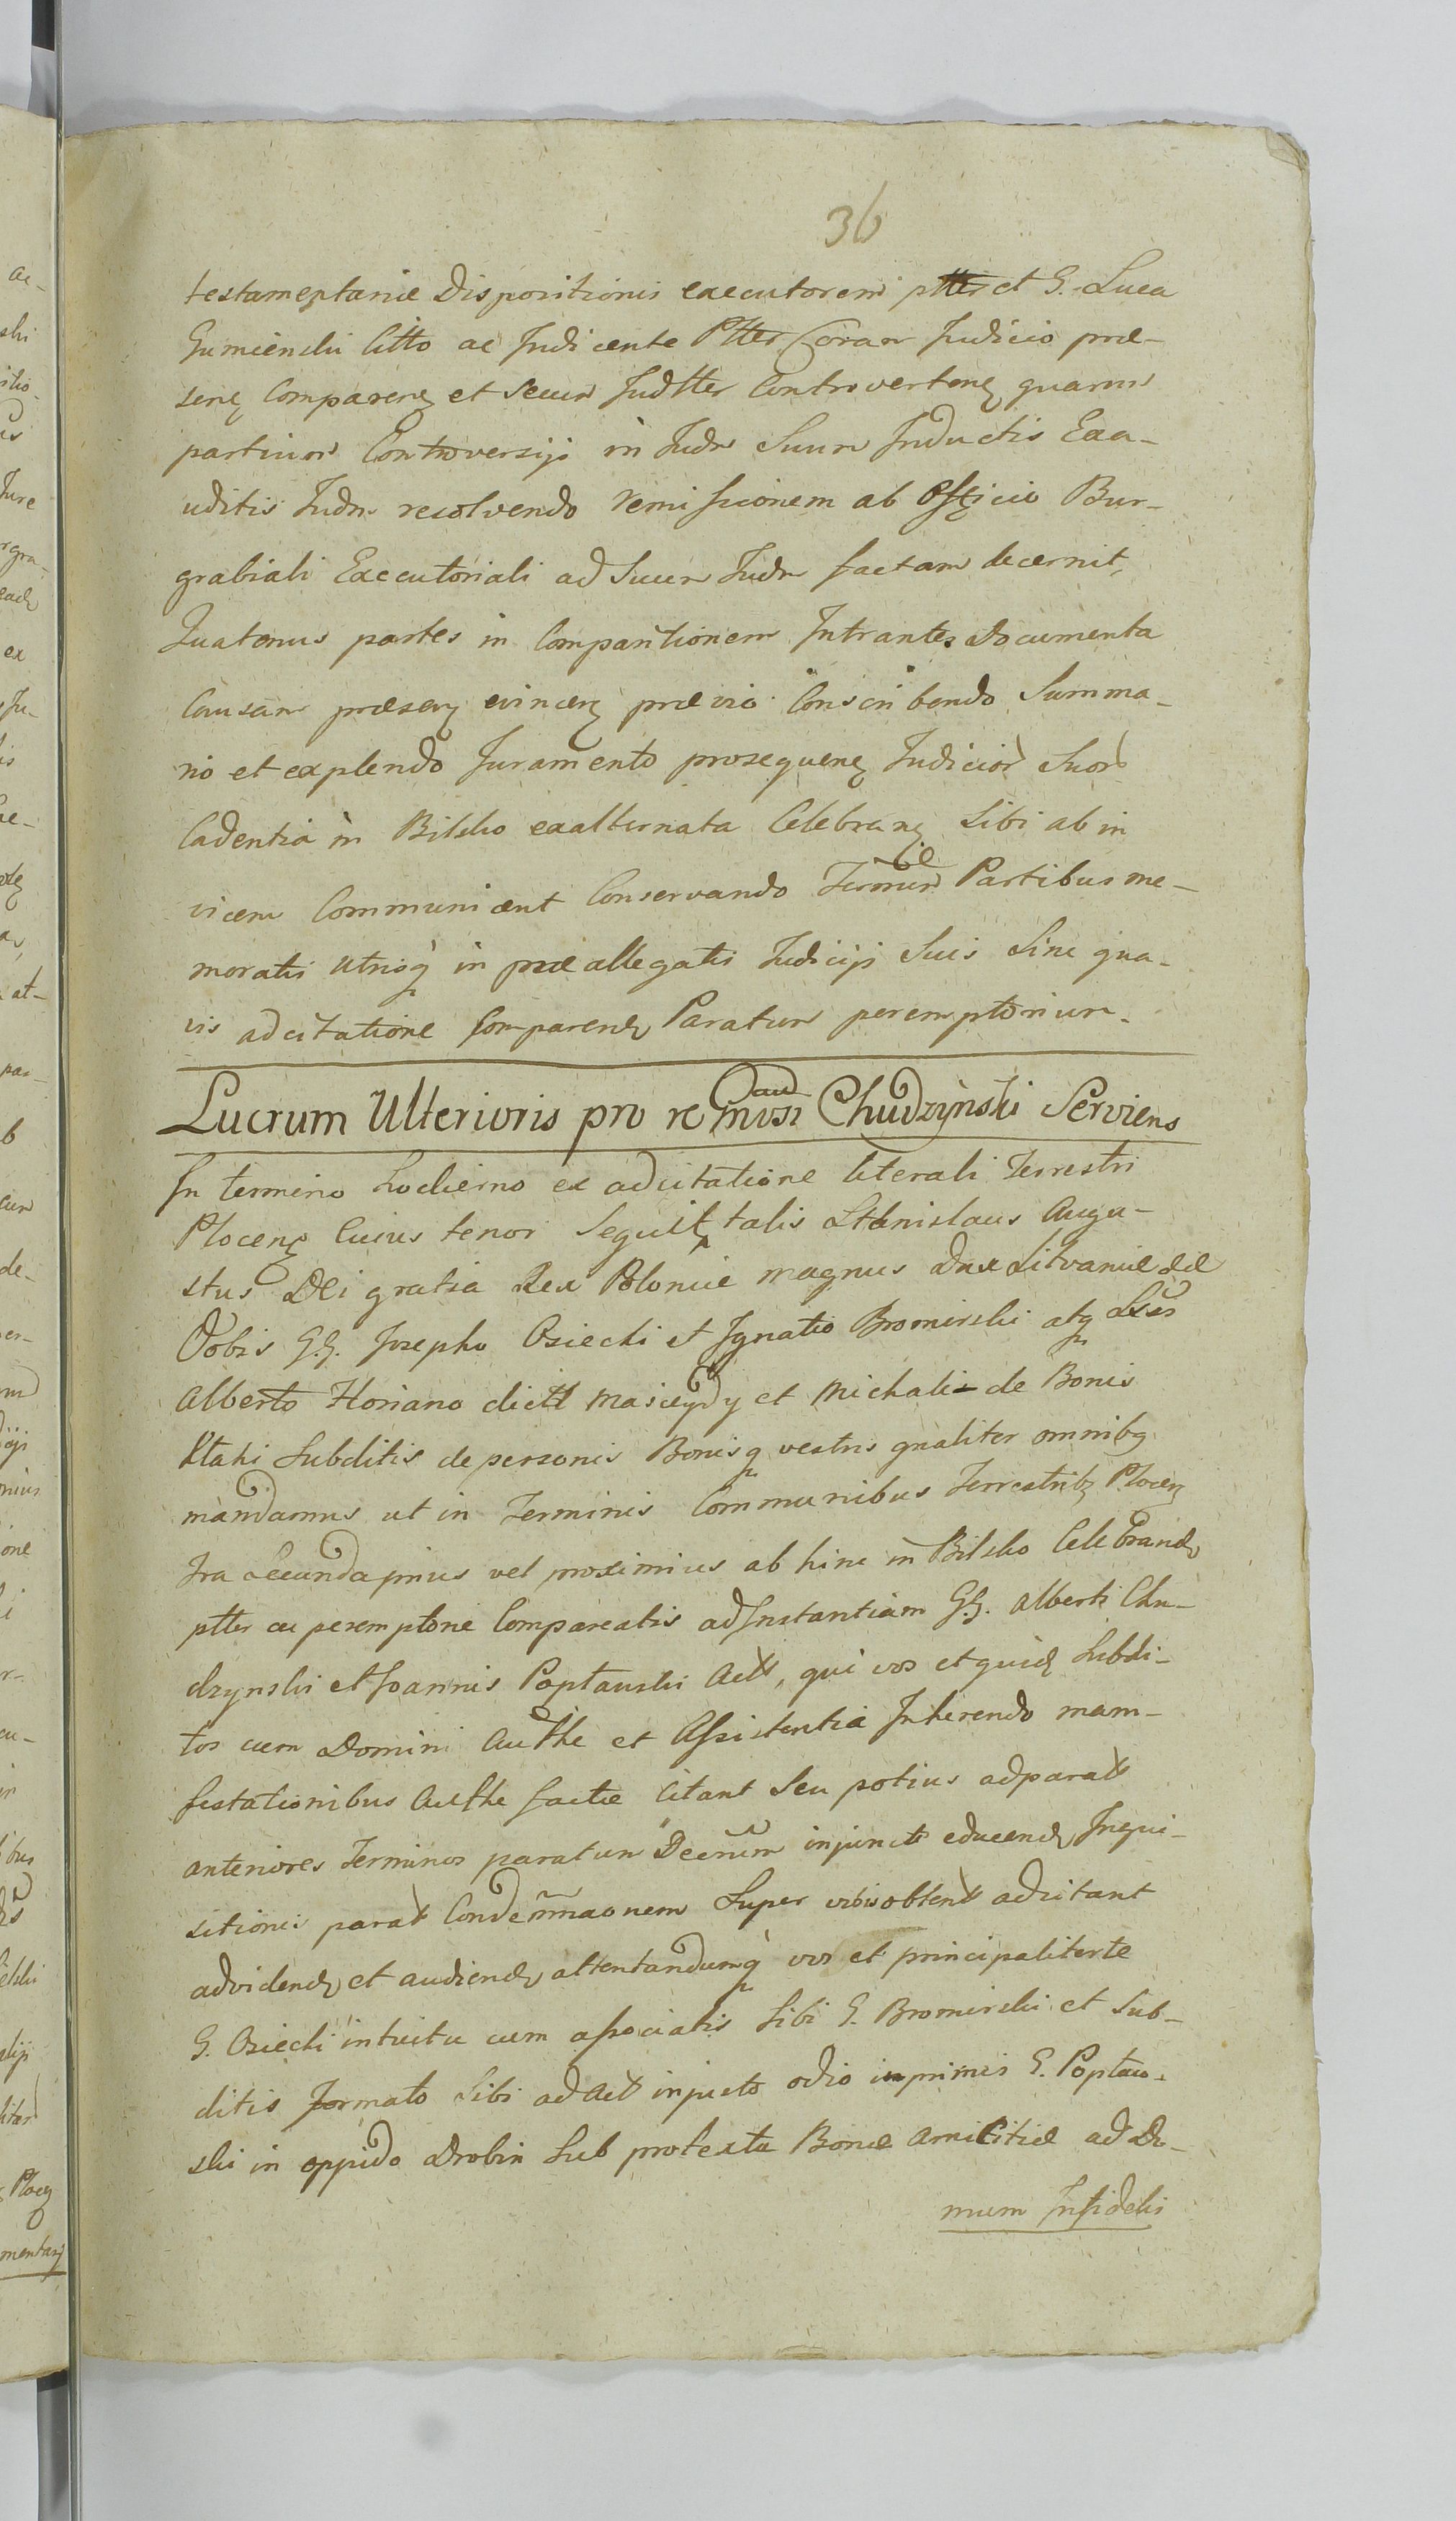 36
testamentariæ Dispositionis executorem ptter et G. Luca
Gumienski Citto ac Judicente Ptter Coram Judicio præ-
senꝫ Comparenꝫ et Secum Judtter Controvertenꝫ quarum
partium Controversijs in Judm Suum Inductis Exa-
uditis Judm resolvendo remissionem ab Officio Bur-
grabiali Executoriali ad Suum Judm factam decernit,
Quatenus partes in Comparitionem Intrantes Documenta
Causam præsenꝫ evincenꝫ prævio Conscribendo Summa-
rio et explendo Juramento prosequenꝫ Judicior Suor
Cadentia in Bilsko exalternata Celebranꝫ Sibi ab in
vicem Communicent Conservando Termin Partibus me-
moratis utrisq in præallegatis Judicijs Suis Sine qua-
vis adcitatione Comparend Paratum peremptorium.
Lucrum Ulterioris pro re Gnosi Chudzÿnski Serviens
In termino hodierno ex adcitatione literali Terrestri
Plocenꝫ Cuius tenor Sequitꝫ talis Stanislaus Augu-
stus Dei gratia Rex Poloniæ magnus Dux Litvaniæ &c
Vobis G.G. Josepho Osiecki et Ignatio Bromirski atq
Alberto Floriano dictt Masceydy et Michali de Bonis
Ktaki Subditis de personis Bonisq vestris qualiter omnibq
mandamus ut in Terminis Communibus Terrestribꝫ Plocenꝫ
Fra Secunda prius vel proximius ab hinc in Bilsko Celebrand
ptter ac peremptorie Compareatis ad Instantiam G.G. Alberti Chu-
dzynski et Joannis Poptawski Actt, qui vos et quid Subdi-
tos cum Domini Autthe et Assistentia Inherendo mani-
festationibus Autthe factæ Citant Seu potius ad paratt
anteriores Terminos paratum Decrum injunctt educend Inqui-
sitionis paratt Condemnaonem Super vobis obtentt adcitant
ad vidend et audiend attentandumq vos et principaliter te
G. Osiecki intuitu cum associatis Sibi G. Bromirski et Sub-
ditis formato Sibi ad Actt injusto odio inprimis G. Poptaw-
ski in oppido Drobin Sub protextu Bonæ amicitiæ ad Do-
mum Infidelis